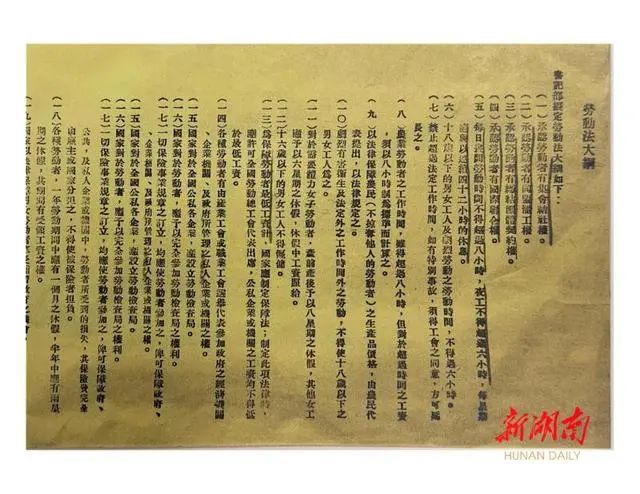 勞動法大綱
書記部擬定勞動法大綱如下：
（一）承認勞動者有集會結社權。
（二）承認勞動者有同盟罷工權。
（三）承認勞動者有締結團體契約權。
（四）承認勞動者有國際聯合權。
（五）每日晝間勞動時間不得超過八小時，夜工不得超過六小時，每星期
應與以連續四十二小時的休息。
（六）十八歲以下的男女工人及劇烈勞動之勞動時間，不得超過六小時。
（七）禁止超過法定工作時間，如有特別事故，須得工會之同意，方可延
長之。
（八）農業勞動者之工作時間，雖得超過八小時，但對於超過時間之工資
，須以八小時制為標準而計算之。
（九）以法律保障農民（不掠奪他人的勞動者）之生產品價格，由農民代
表提出，以法律規定之。
（十）劇烈有害衛生及法定外之工作時間外之勞動，不得使十八歲以下之
男女工人為之。
（十一）對於需要體力女子勞動者，產前產後予以八星期之休假，其他女工
應予以六星期之休假，休假中工資照給。
（十二）十六歲以下的男女工人不得僱傭。
（十三）為保障勞動者最低工資計，國家應制定保障法；制定此項法律時，
應許可全國勞動總工會代表出席，公私企業或機關之工資均不得低
於最低工資。
（十四）各種勞動者有由產業工會或職業工會選舉代表參加政府之經濟機關
、企業機關、及政府所管理之私人企業或機關之權。
（十五）國家對於全國公私各企業，應設立勞動檢查局。
（十六）國家對於勞動者，應予以完全參加勞動檢查局之權利。
（十七）一切保險事業規章之訂立，均應使勞動者參加之，俾可保障政府、
、企業機關、及政府所管理之私人企業或機關之權。
（十五）國家對於全國公私各企業，應設立勞動檢查局。
（十六）國家對於勞動者，應予以完全參加勞動檢查局之權利。
（十七）一切保險事業規章之訂立，均應使勞動者參加之，俾可保障政府、
公共，及私人企業或機關中，勞動者所受到的損失，其保險費完全
由雇主或國家分担之，不得使被保險者担負。
（十八）各種勞動者，一年勞動期間中應有一個月之休假，半年中應有兩星
期之休假，其期間有受領工資之權。
新湖南
HUNAN DAILY